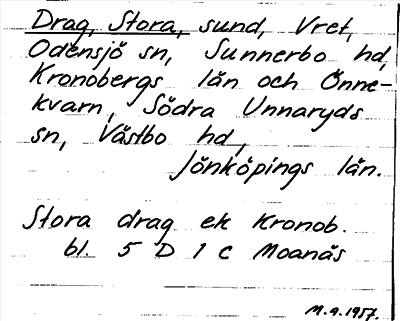 Drag, Stora, sund, Vret,
Odensjö sn, Sunnerbo hd,
Kronobergs län och Önne-
kvarn, Södra Unnaryds
sn, Västbo hd,
Jönköpings län.
Stora drag ek Kronob.
bl. 5 D 1 c Moanäs
M.a. 1957.